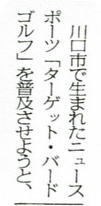 川口市で生まれたニュース
ポーツ「ターゲット・バード
ゴルフ」を普及させようと、